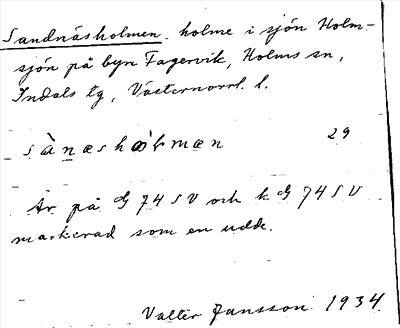 Sandnäsholmen. holme i sjön Holm-
sjön på byn Fagervik, Holms sn,
Indals tg, Västernorrl. l.
29
Är på G 74 SV och k G 74 SV
markerad som en udde.
Valter Jansson 1934.